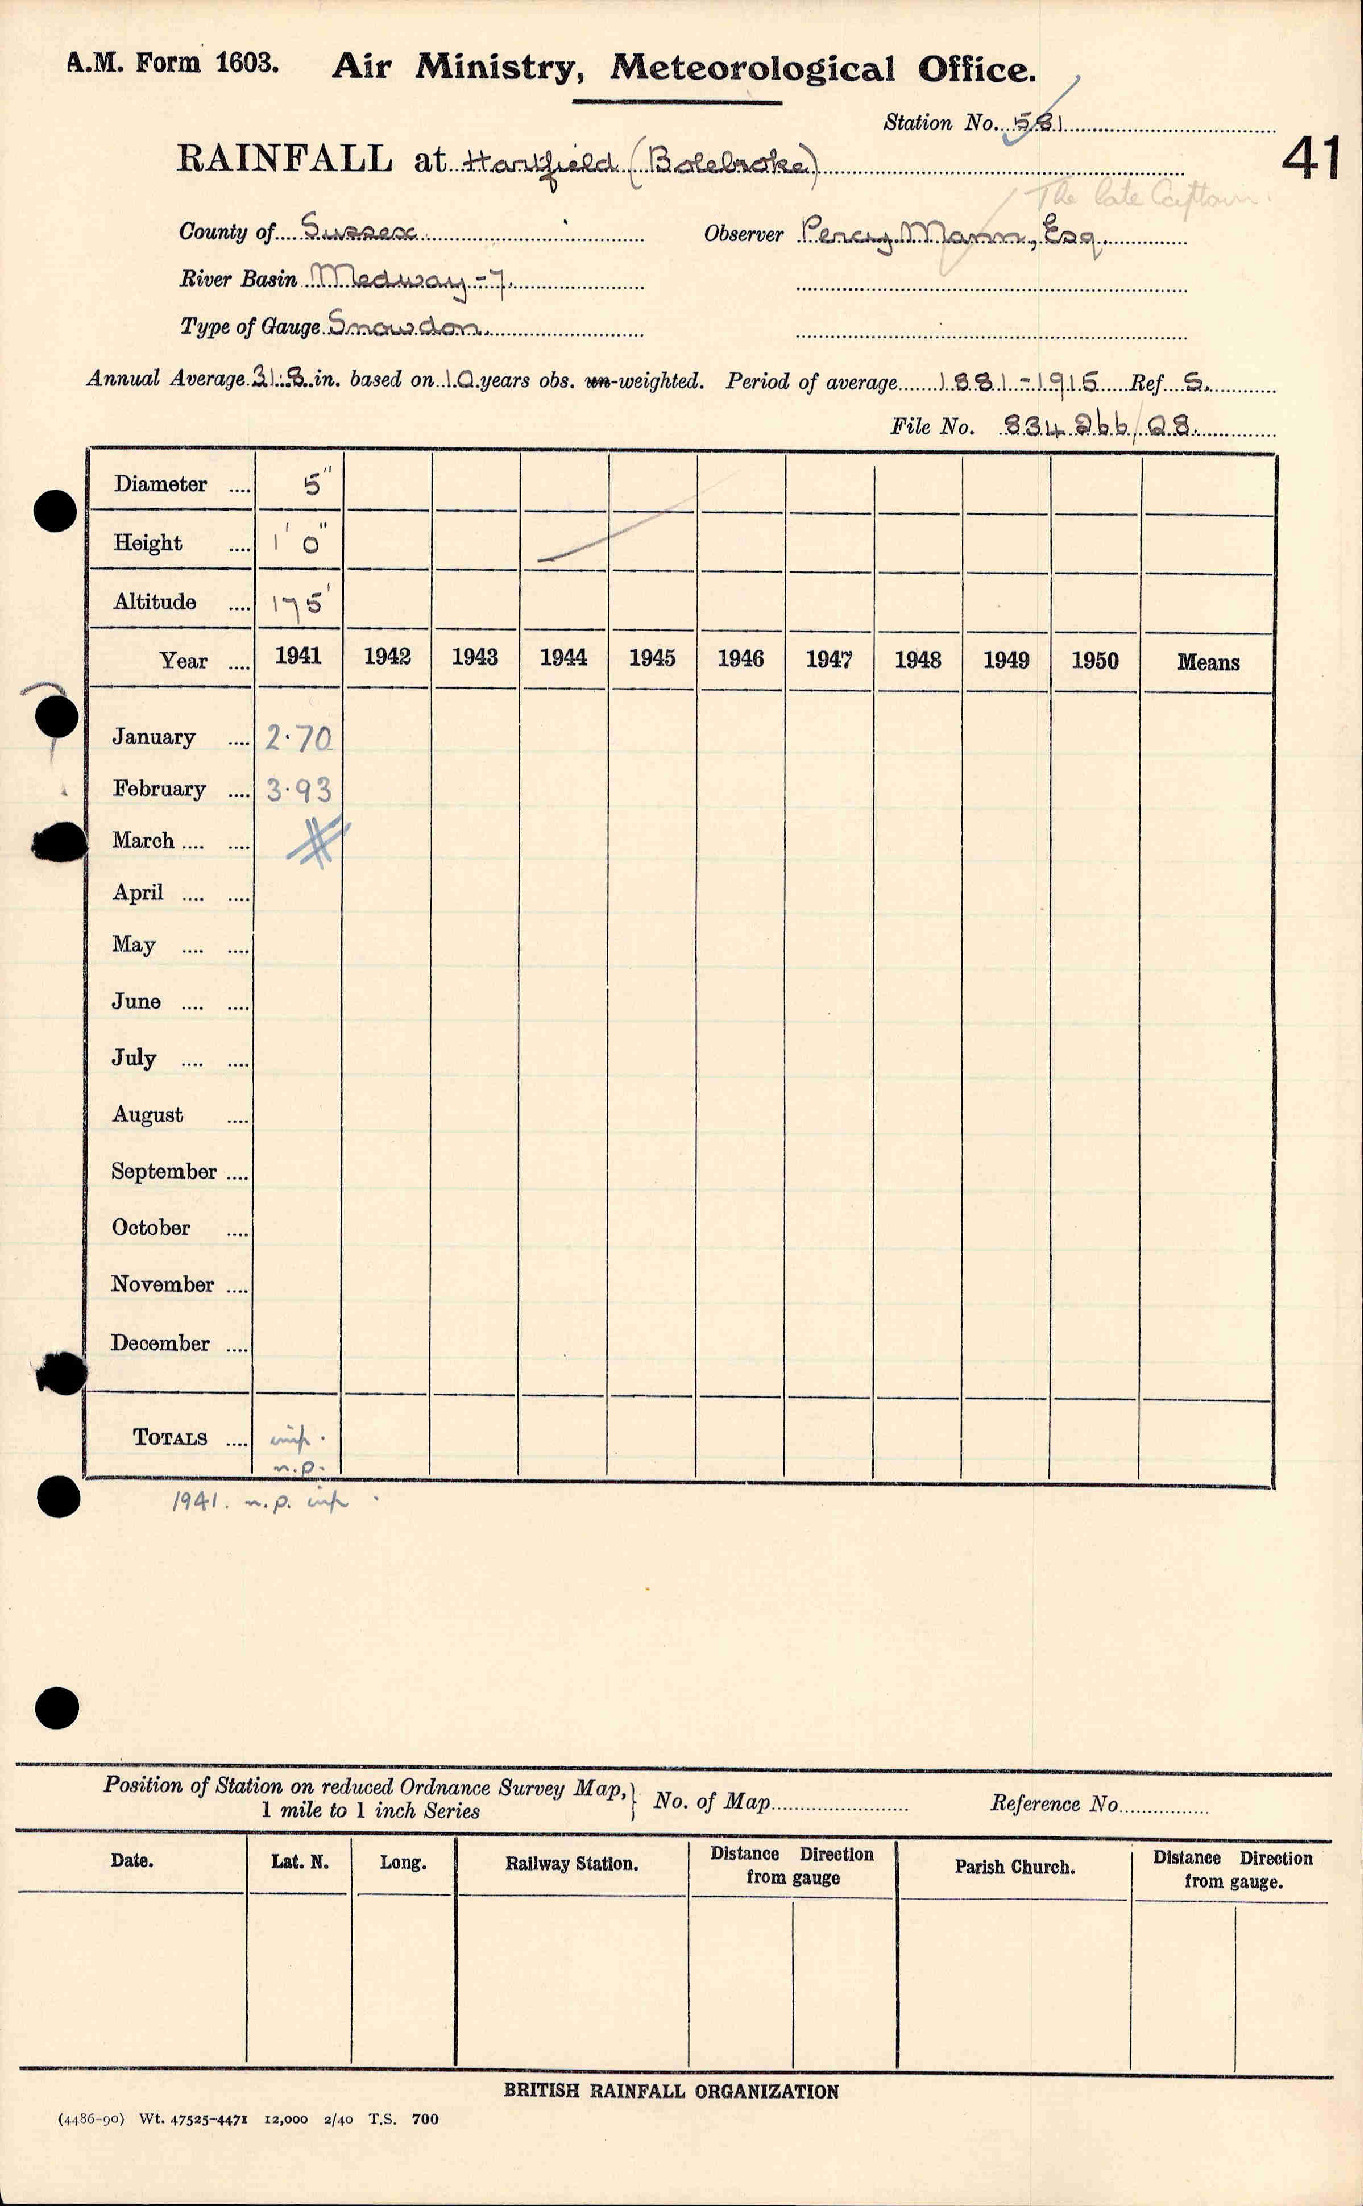 A.M. Form 1603. Air Ministry, Meteorological Office.
Station No. 581
41
RAINFALL at Hartfield (Bolebroke)
The late Captain.
County of Sussex Observer Percy Mann, Esq.
River Basin Medway - 7.
Type of Gauge Snowdon.
Annual Average 31.8 in. based on 10 years obs. un-weighted. Period of average 1881 - 1915 Ref S.
File No. 834266/28.
Diameter .... 5"
Height .... 1' 0"
Altitude .... 175'
Year .... 1941 1942 1943 1944 1945 1946 1947 1948 1949 1950 Means
January .... 2.70
February .... 3.93
March .... .... #
April .... ....
May .... ....
June .... ....
July .... ....
August ....
September ....
October ....
November ....
December ....
TOTALS .... inf.
n.p.
1941. n.p. inf.
Position of Station on reduced Ordnance Survey Map, } No. of Map Reference No.
1 mile to 1 inch Series
Date. Lat. N. Long. Railway Station. Distance Direction from gauge Parish Church. Distance Direction from gauge.
BRITISH RAINFALL ORGANIZATION
(4486-90) Wt. 47525-4471 12,000 2/40 T.S. 700